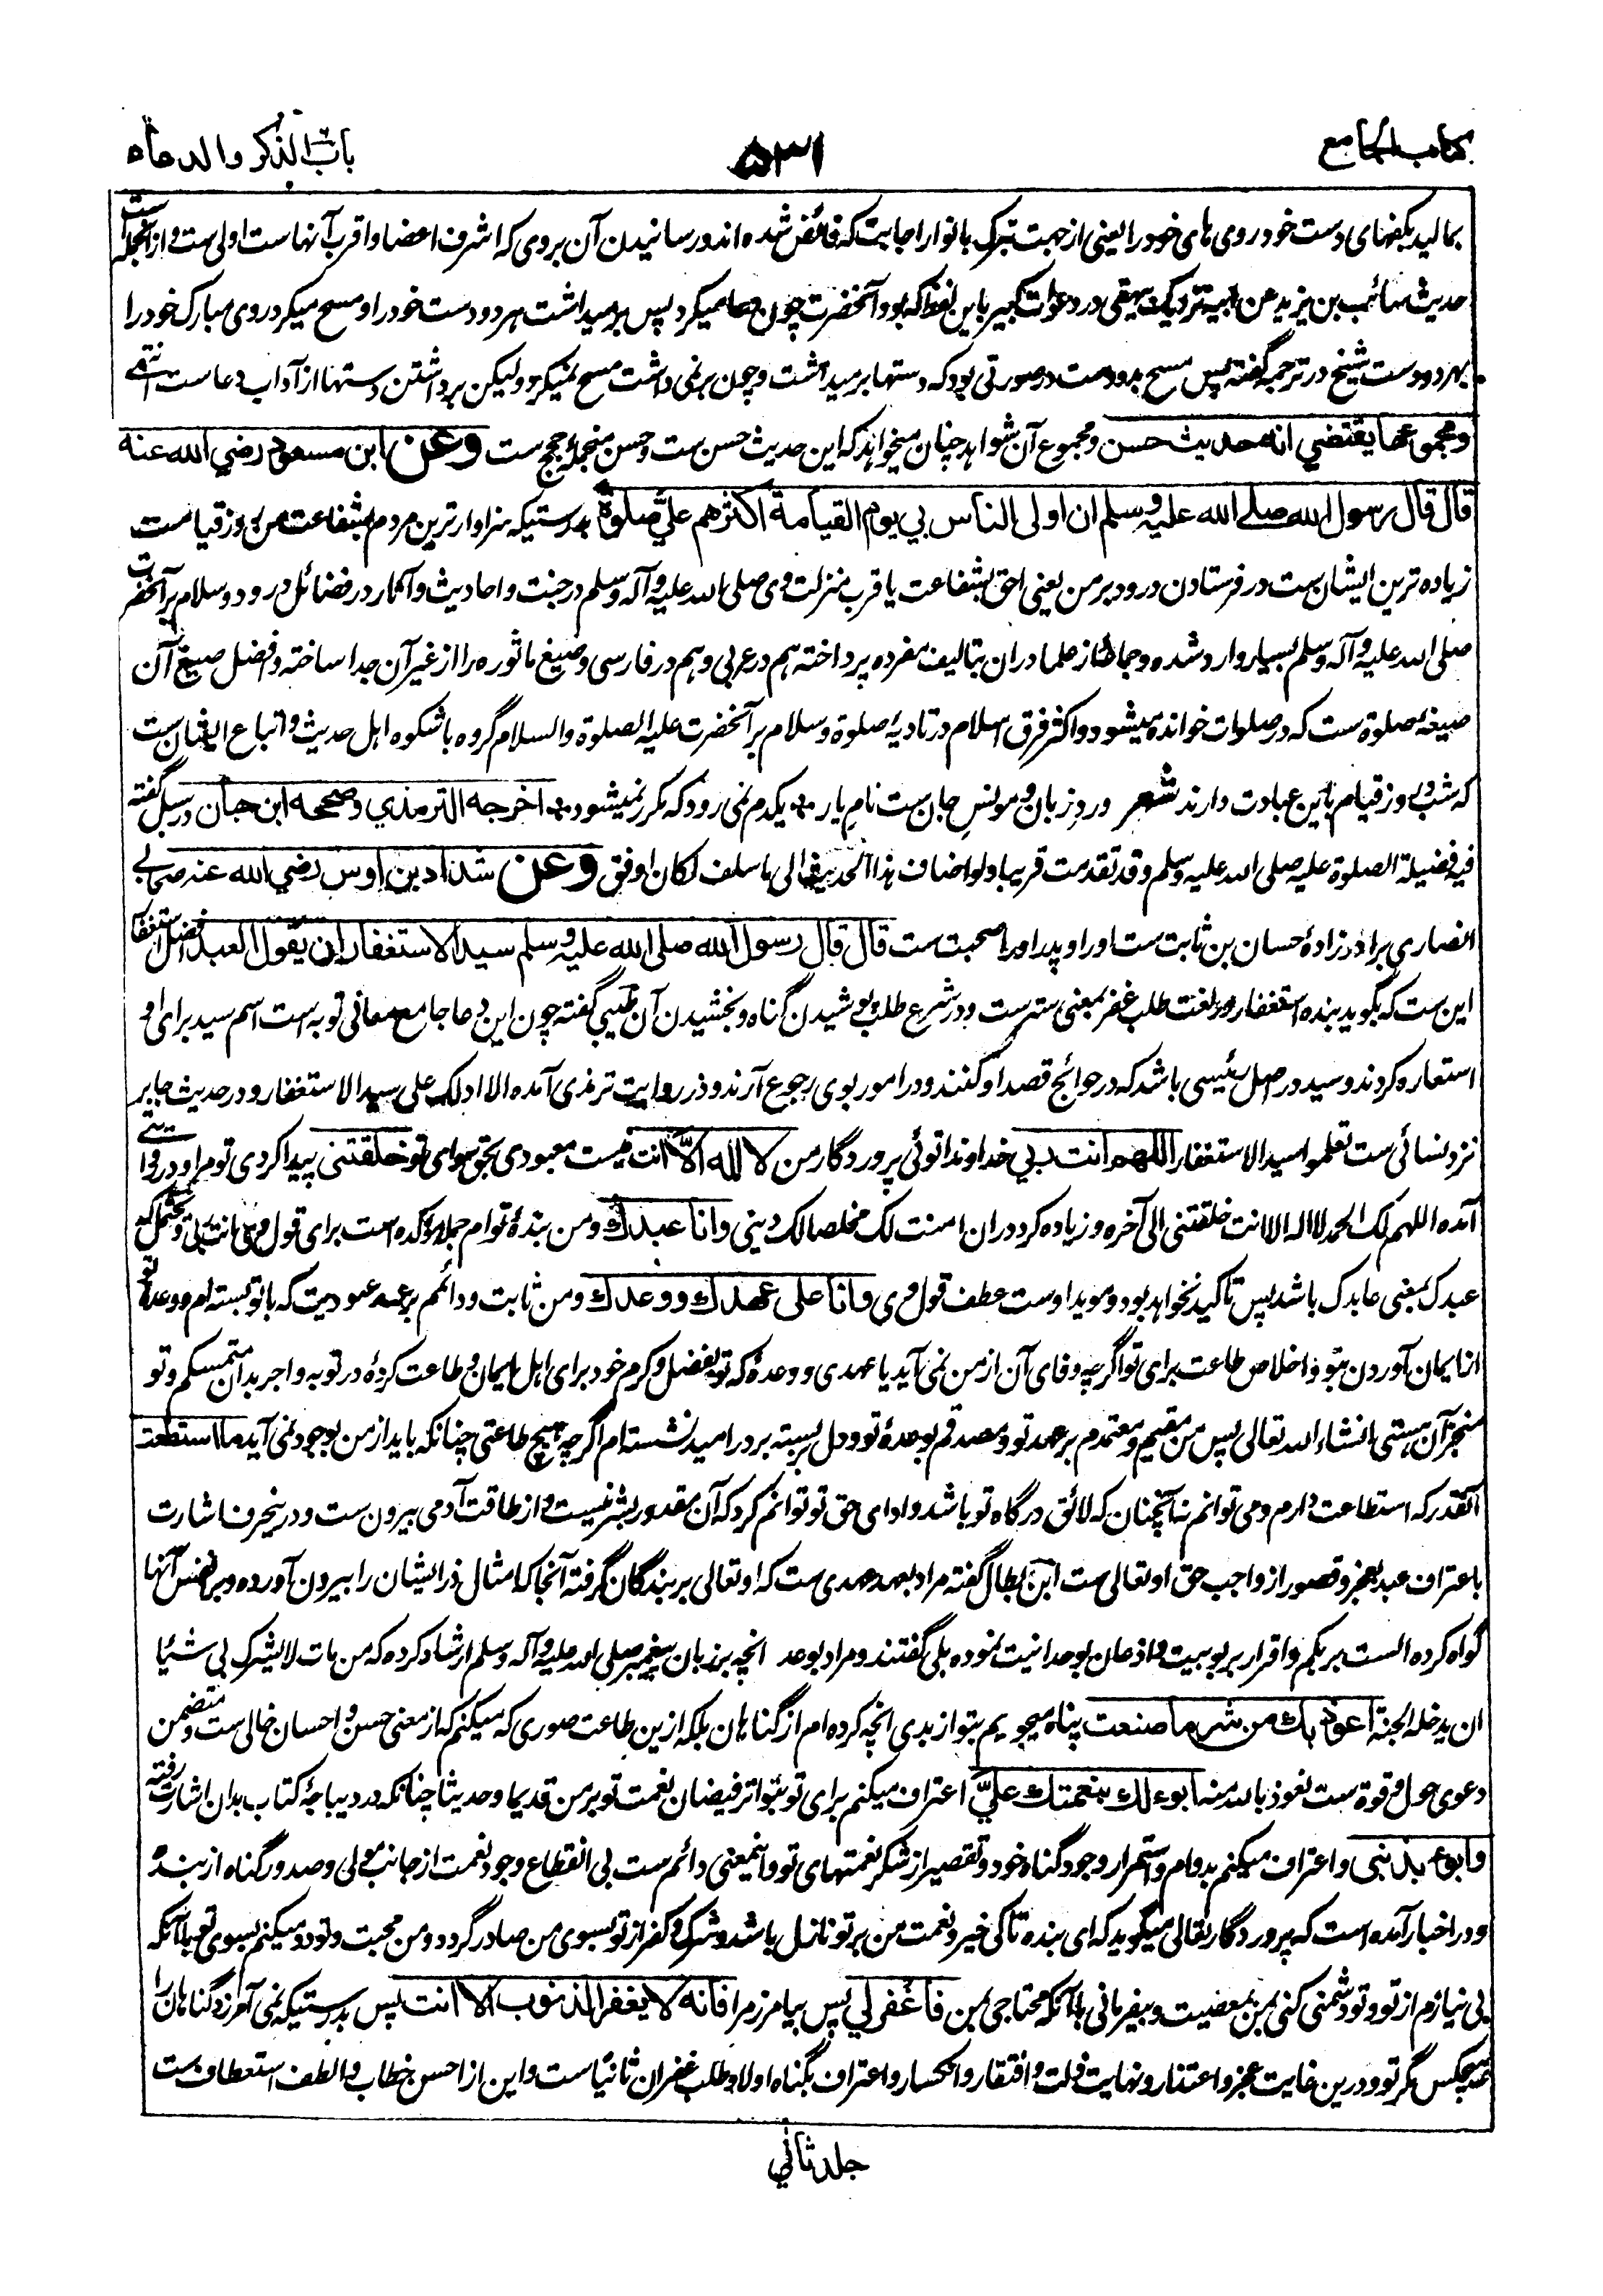 کتاب الجامع
۵۳۱
باب الذکر والدعاء
بمالید بکفهای دست خود روی های خود را یعنی از جهت تبرک بانوار اجابت که فائض شده اند و رسانیدن آن بروی که اشرف اعضا و اقرب آنهاست اولی ست و از انجمله است
حدیث سائب بن یزید عن ابیه نزدیک بیهقی در دعوات کبیر باین لفظ که بود آنحضرت چون دعا میکرد پس برمیداشت هر دو دست خود را و مسح میکرد روی مبارک خود را
بهر دو دست شیخ در ترجمه گفته پس مسح بدو دست در صورتی بود که دستها برمیداشت و چون برنمی داشت مسح نمیکرد و لیکن برداشتن دستها از آداب دعاست انتهی
ومجموعها یقتضی انه حدیث حسن ومجموع آن شواهد چنان میخواهد که این حدیث حسن ست و حسن منجمله حجج ست وعن ابن مسعود رضي الله عنه
قال قال رسول الله صلے الله علیه وسلم ان اولی الناس بي یوم القیامة اکثرهم عليّ صلوة بدرستیکه سزاوارترین مردم بشفاعت من روز قیامت
زیاده ترین ایشان ست در فرستادن درود بر من یعنی احق بشفاعت یا قرب منزلت وی صلی الله علیه وآله وسلم در جنت و احادیث و آثار در فضائل درود و سلام بر آنحضرت
صلی الله علیه وآله وسلم بسیار وارد شده و جماعتی از علما دران بتالیف مفرده پرداخته هم در عربی و هم در فارسی و صیغ ماثوره را از غیر آن جدا ساخته و افضل صیغ آن
صیغۀ صلوة ست که در صلوات خوانده میشود و اکثر فرق اسلام در تادیۀ صلوة و سلام بر آنحضرت علیه الصلوة والسلام گروه باشکوه اهل حدیث و اتباع ایشان ست
که شب و روز قیام باین عبادت دارند شعر ورد زبان و مونس جان ست نام یار ٭ یکدم نمی رود که مکرر نمیشود ٭ اخرجه الترمذي وصححه ابن حبان در سبل گفته
فیه فضیلة الصلوة علیه صلی الله علیه وسلم وقد تقدمت قریبا ولو اضاف هذا الحدیث الی ما سلف لکان اوفق وعن شداد بن اوس رضي الله عنه صحابی
انصاری برادرزادۀ حسان بن ثابت ست او را و پدر او را صحبت ست قال قال رسول الله صلی الله علیه وسلم سید الاستغفار ان یقول العبد افضل استغفار
این ست که بگوید بنده استغفار در لغت طلب غفر بمعنی ستر ست و در شرع طلب پوشیدن گناه و بخشیدن آن طیبی گفته چون این دعا جامع معانی توبه است اسم سید برای او
استعاره کردند و سید در اصل رئیسی باشد که در حوائج قصد او کنند و در امور بوی رجوع آرند و در روایت ترمذی آمده الا ادلک علی سید الاستغفار و در حدیث جابر
نزد نسائی ست تعلموا سید الاستغفار اللهم انت ربي خداوندا توئی پروردگار من لا اله الّا انت نیست معبودی بحق سوای تو خلقتنی پیدا کردی تو مرا و در روایتے
آمده اللهم لک الحمد لا اله الا انت خلقتنی الی آخره و زیاده کرد دران امنت لک مخلصا لک دینی وانا عبدك و من بندۀ توام جمله مؤکده است برای قول وی انت ربی و محتمل که
عبدک بمعنی عابدک باشد پس تاکید نخواهد بود و موید اوست عطف قول وی وانا علی عهدك ووعدك و من ثابت و دائمم بر عهد عبودیت که با تو بسته ام و وعدۀ تو
از ایمان آوردن بتو و اخلاص طاعت برای تو اگرچه وفای آن از من نمی آید یا عهدی و وعدۀ که تو بفضل و کرم خود برای اهل ایمان و طاعت کردۀ در توبه و اجر بدان متمسکم و تو
منجز آن هستی انشاء الله تعالی پس من مقیم و معتمدم بر عهد تو و مصدقم بوعدۀ تو و دل بسته بر در امید نشسته ام اگرچه هیچ طاعتی چنانکه باید از من بوجود نمی آید ما استطعت
آنقدر که استطاعت دارم و می توانم نه آنچنان که لائق درگاه تو باشد و ادای حق تو توانم کرد که آن مقدور بشر نیست و از طاقت آدمی بیرون ست و درینحرف اشارت
باعتراف عبد بعجز و قصور از واجب حق او تعالی ست ابن بطال گفته مراد بعهد عهدی ست که او تعالی بر بندگان گرفته آنجا که امثال ذر ایشان را بیرون آورده و بر نفس آنها
گواه کرده الست بربکم و اقرار بربوبیت و اذعان بوحدانیت نموده بلی گفتند و مراد بوعد انچه بر زبان پیغمبر صلی الله علیه وآله وسلم ارشاد کرده که من مات لا یشرک بی شیئا
ان یدخله الجنة اعوذ بك من شر ما صنعت پناه میجویم بتو از بدی انچه کرده ام از گناهان بلکه ازین طاعت صوری که میکنم که از معنی حسن و احسان خالی ست و متضمن
دعوی حول و قوة ست نعوذ بالله منه ابوء لك بنعمتك عليّ اعتراف میکنم برای تو بتواتر فیضان نعمت تو بر من قدیما و حدیثا چنانکه در دیباجۀ کتاب بدان اشارت رفته
وابوء بذنبی و اعتراف میکنم بدوام و استمرار وجود گناه خود و تقصیر از شکر نعمتهای تو و اینمعنی دائم ست بی انقطاع وجود نعمت از جانب مولی و صدور گناه از بنده
و در اخبار آمده است که پروردگار تعالی میگوید که ای بنده تا کی خیر و نعمت من بر تو نازل باشد و شرک و کفر از تو بسوی من صادر گردد و من محبت و تودد میکنم بسوی تو با آنکه
بی نیازم از تو و تو دشمنی کنی بمن بمعصیت و بیفرمانی با آنکه محتاجی بمن فاغفر لي پس بیامرز مرا فانه لا یغفر الذنوب الا انت پس بدرستیکه نمی آمرزد گناهان را
هیچکس مگر تو و درین غایت عجز و اعتذار و نهایت ذلت و افتقار و انکسار و اعتراف بگناه اولا و طلب غفران ثانیا ست و این از احسن خطاب و الطف استعطاف ست
جلد ثاني